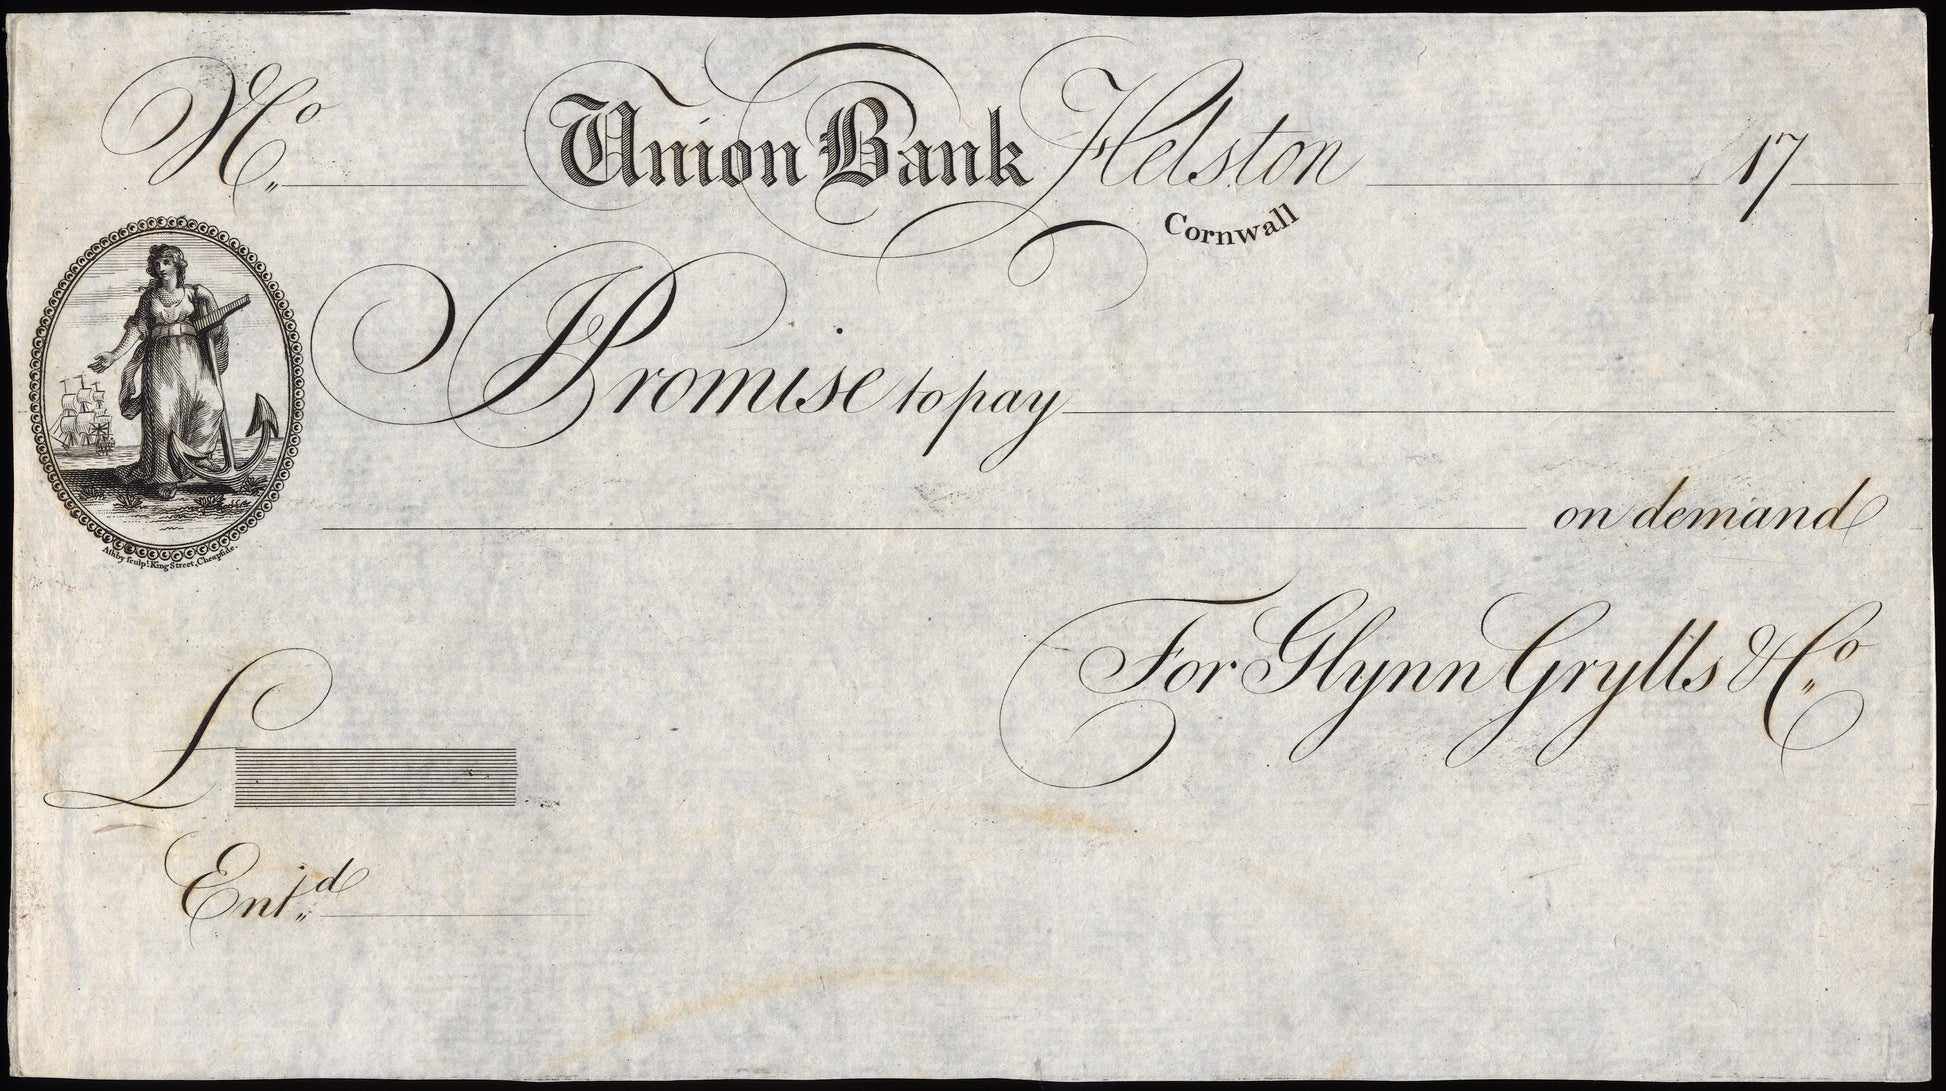 No Union Bank Helston 17
Cornwall
I Promise to pay
on demand
Ashby sculpt. King Street, Cheapside.
For Glynn Grylls & Co
£
Entd